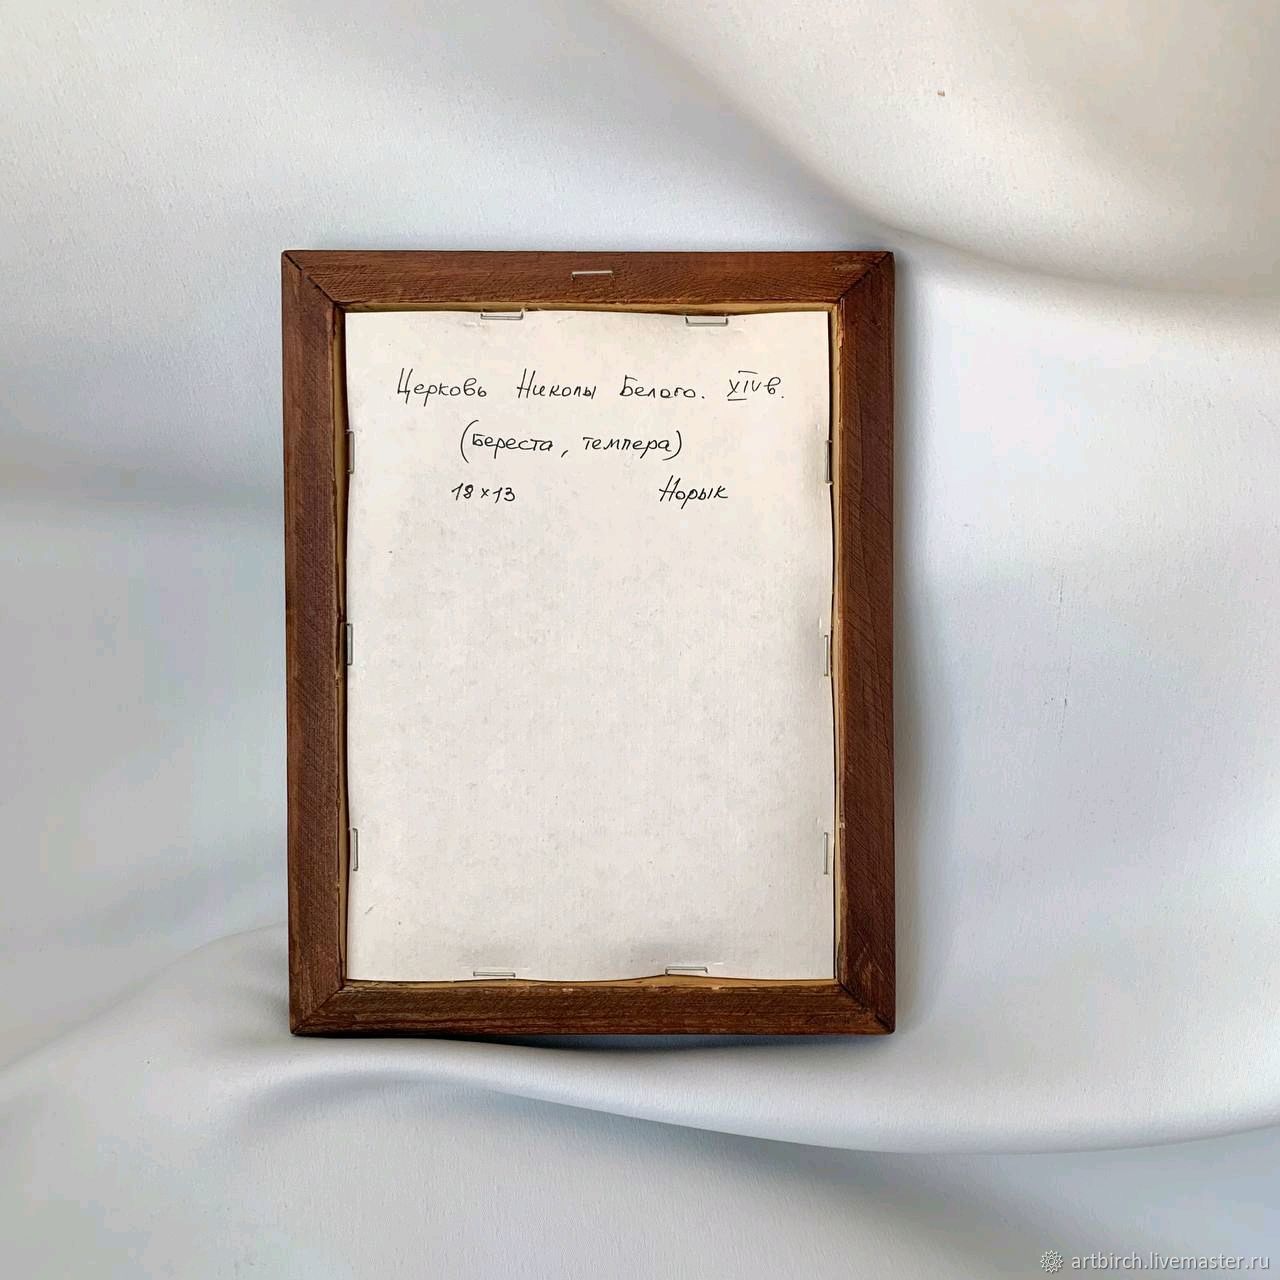 Церковь Николы Белого. XIVв.
(береста, темпера)
18×13 Норык
artbirch.livemaster.ru